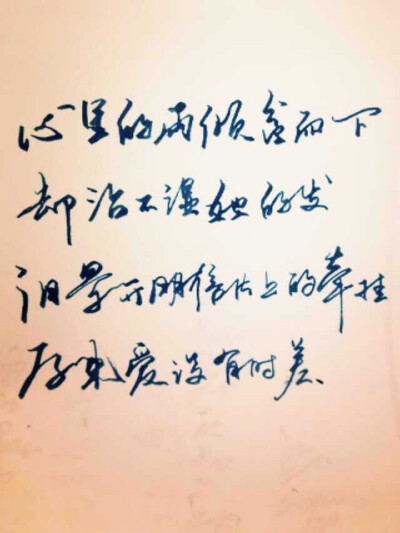 心里的雨倾盆而下
却沾不湿她的发
泪晕开明信片上的牵挂
原来爱没有时差